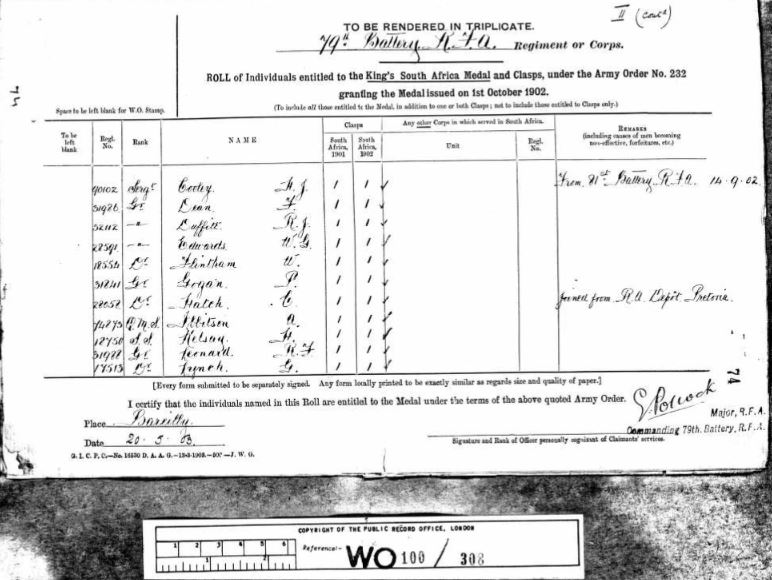 II (Cont'd)
TO BE RENDERED IN TRIPLICATE.
79th Battery R.F.A. Regiment or Corps.
ROLL of Individuals entitled to the King's South Africa Medal and Clasps, under the Army Order No. 232
granting the Medal issued on 1st October 1902.
Space to be left blank for W.O. Stamp.
(To include all those entitled to the Medal, in addition to one or both Clasps; not to include those entitled to Clasps only.)
To be left blank
Regl. No.
Rank
NAME
Clasps
South Africa, 1901
South Africa, 1902
Any other Corps in which served in South Africa.
Unit
Regl. No.
REMARKS
(including causes of men becoming non-effective, forfeitures, etc.)
90102 Sergt Cooley H. J. 1 1 From 81st Battery R.F.A. 14.9.02
31986 Gr Dean F 1 1
52112 -"- Duffill R. J. 1 1
28591 -"- Edwards W. G. 1 1
18554 Dr Flintham W. 1 1
31841 Gr Gogan P. 1 1
28058 Dr Hatch C. 1 1 joined from R.A. Depôt Pretoria.
74873 Q.M.S. Ibbitson A. 1 1
12750 S.S. Kelsay H. 1 1
31988 Gr Leonard R. F 1 1
17513 Dr Lynch G. 1 1
[Every form submitted to be separately signed. Any form locally printed to be exactly similar as regards size and quality of paper.]
I certify that the individuals named in this Roll are entitled to the Medal under the terms of the above quoted Army Order.
Place Bareilly
Date 20.5.03.
Major, R.F.A.
Commanding 79th. Battery, R.F.A.
Signature and Rank of Officer personally cognizant of Claimants' services.
74
COPYRIGHT OF THE PUBLIC RECORD OFFICE, LONDON
1 2 3 4 5 6
1 2
Reference:-
WO 100 / 308